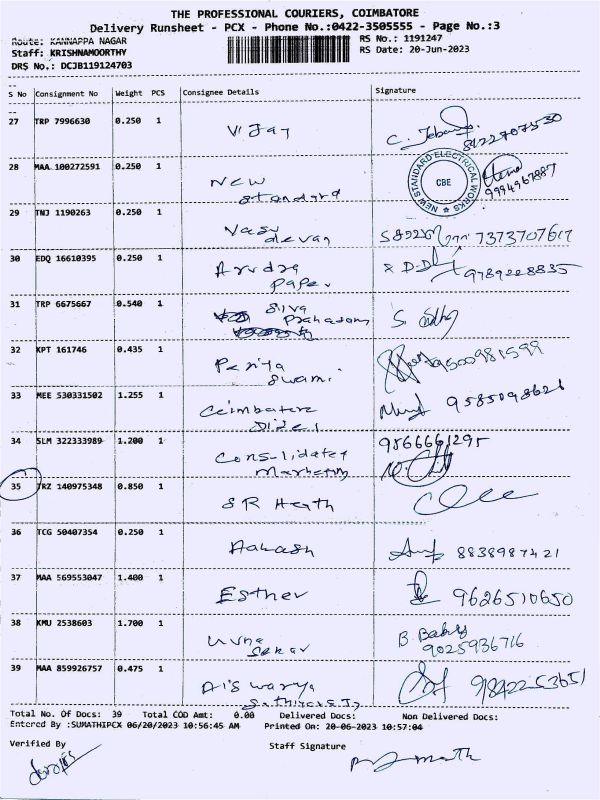 THE PROFESSIONAL COURIERS, COIMBATORE
Delivery Runsheet - PCX - Phone No.:0422-3505555 - Page No.:3
Route: KANNAPPA NAGAR RS No.: 1191247
Staff: KRISHNAMOORTHY RS Date: 20-Jun-2023
DRS No.: DCJB119124703
S No Consignment No Weight PCS Consignee Details Signature
27 TRP 7996630 0.250 1 Vijay 8122707530
28 MAA 100272591 0.250 1 New Standard NEW STANDARD ELECTRICAL WORKS CBE 9994967887
29 TNJ 1190263 0.250 1 Vasudevan 7373707617
30 EDQ 16610395 0.250 1 Paper 9789228835
31 TRP 6675667 0.540 1 Siva
32 KPT 161746 0.435 1 Periya Swami 9500981599
33 MEE 530331502 1.255 1 Coimbatore
34 SLM 322333989 1.200 1 Marketing 9566661295
35 TRZ 140975348 0.850 1 SR Heath
36 TCG 50407354 0.250 1 Aakash 8838987421
37 MAA 569553047 1.400 1 Esther 9626510650
38 KMU 2538603 1.700 1 Sekar B. Baby 9025936716
39 MAA 859926757 0.475 1 Aiswarya
Total No. Of Docs: 39 Total COD Amt: 0.00 Delivered Docs: Non Delivered Docs:
Entered By :SUMATHIPCX 06/20/2023 10:56:45 AM Printed On: 20-06-2023 10:57:04
Verified By Staff Signature